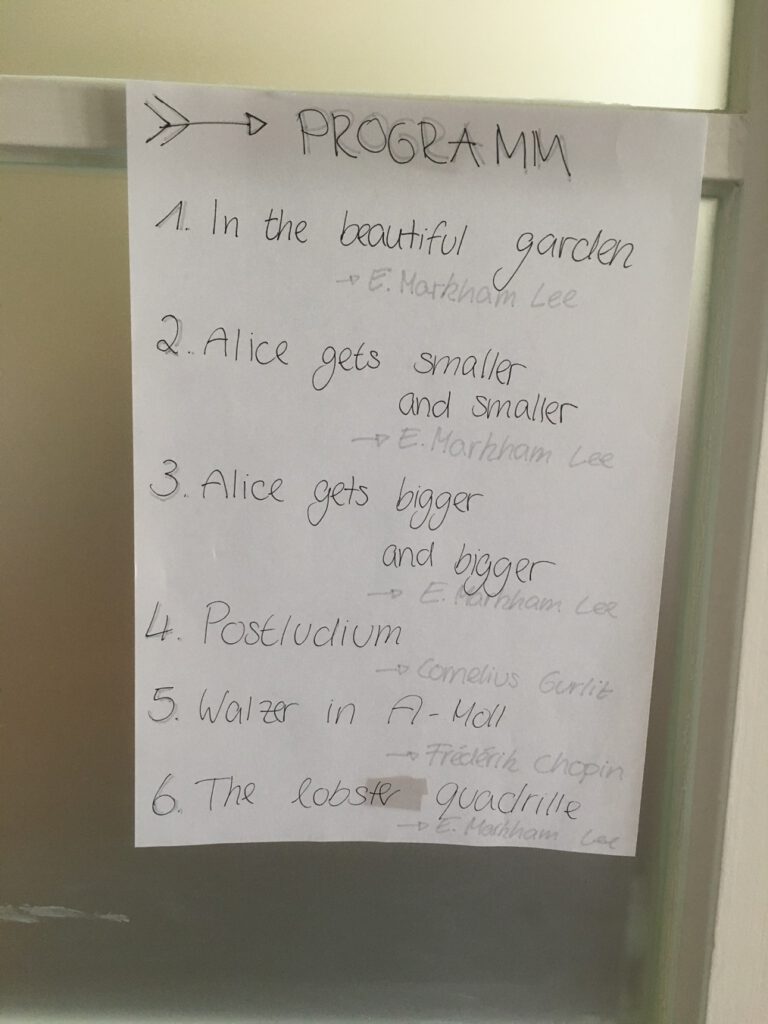 PROGRAMM
1. In the beautiful garden
→ E. Markham Lee
2. Alice gets smaller
and smaller
→ E. Markham Lee
3. Alice gets bigger
and bigger
→ E. Markham Lee
4. Postludium
→ Cornelius Gurlit
5. Walzer in A-Moll
→ Frédérik Chopin
6. The lobster quadrille
→ E. Markham Lee